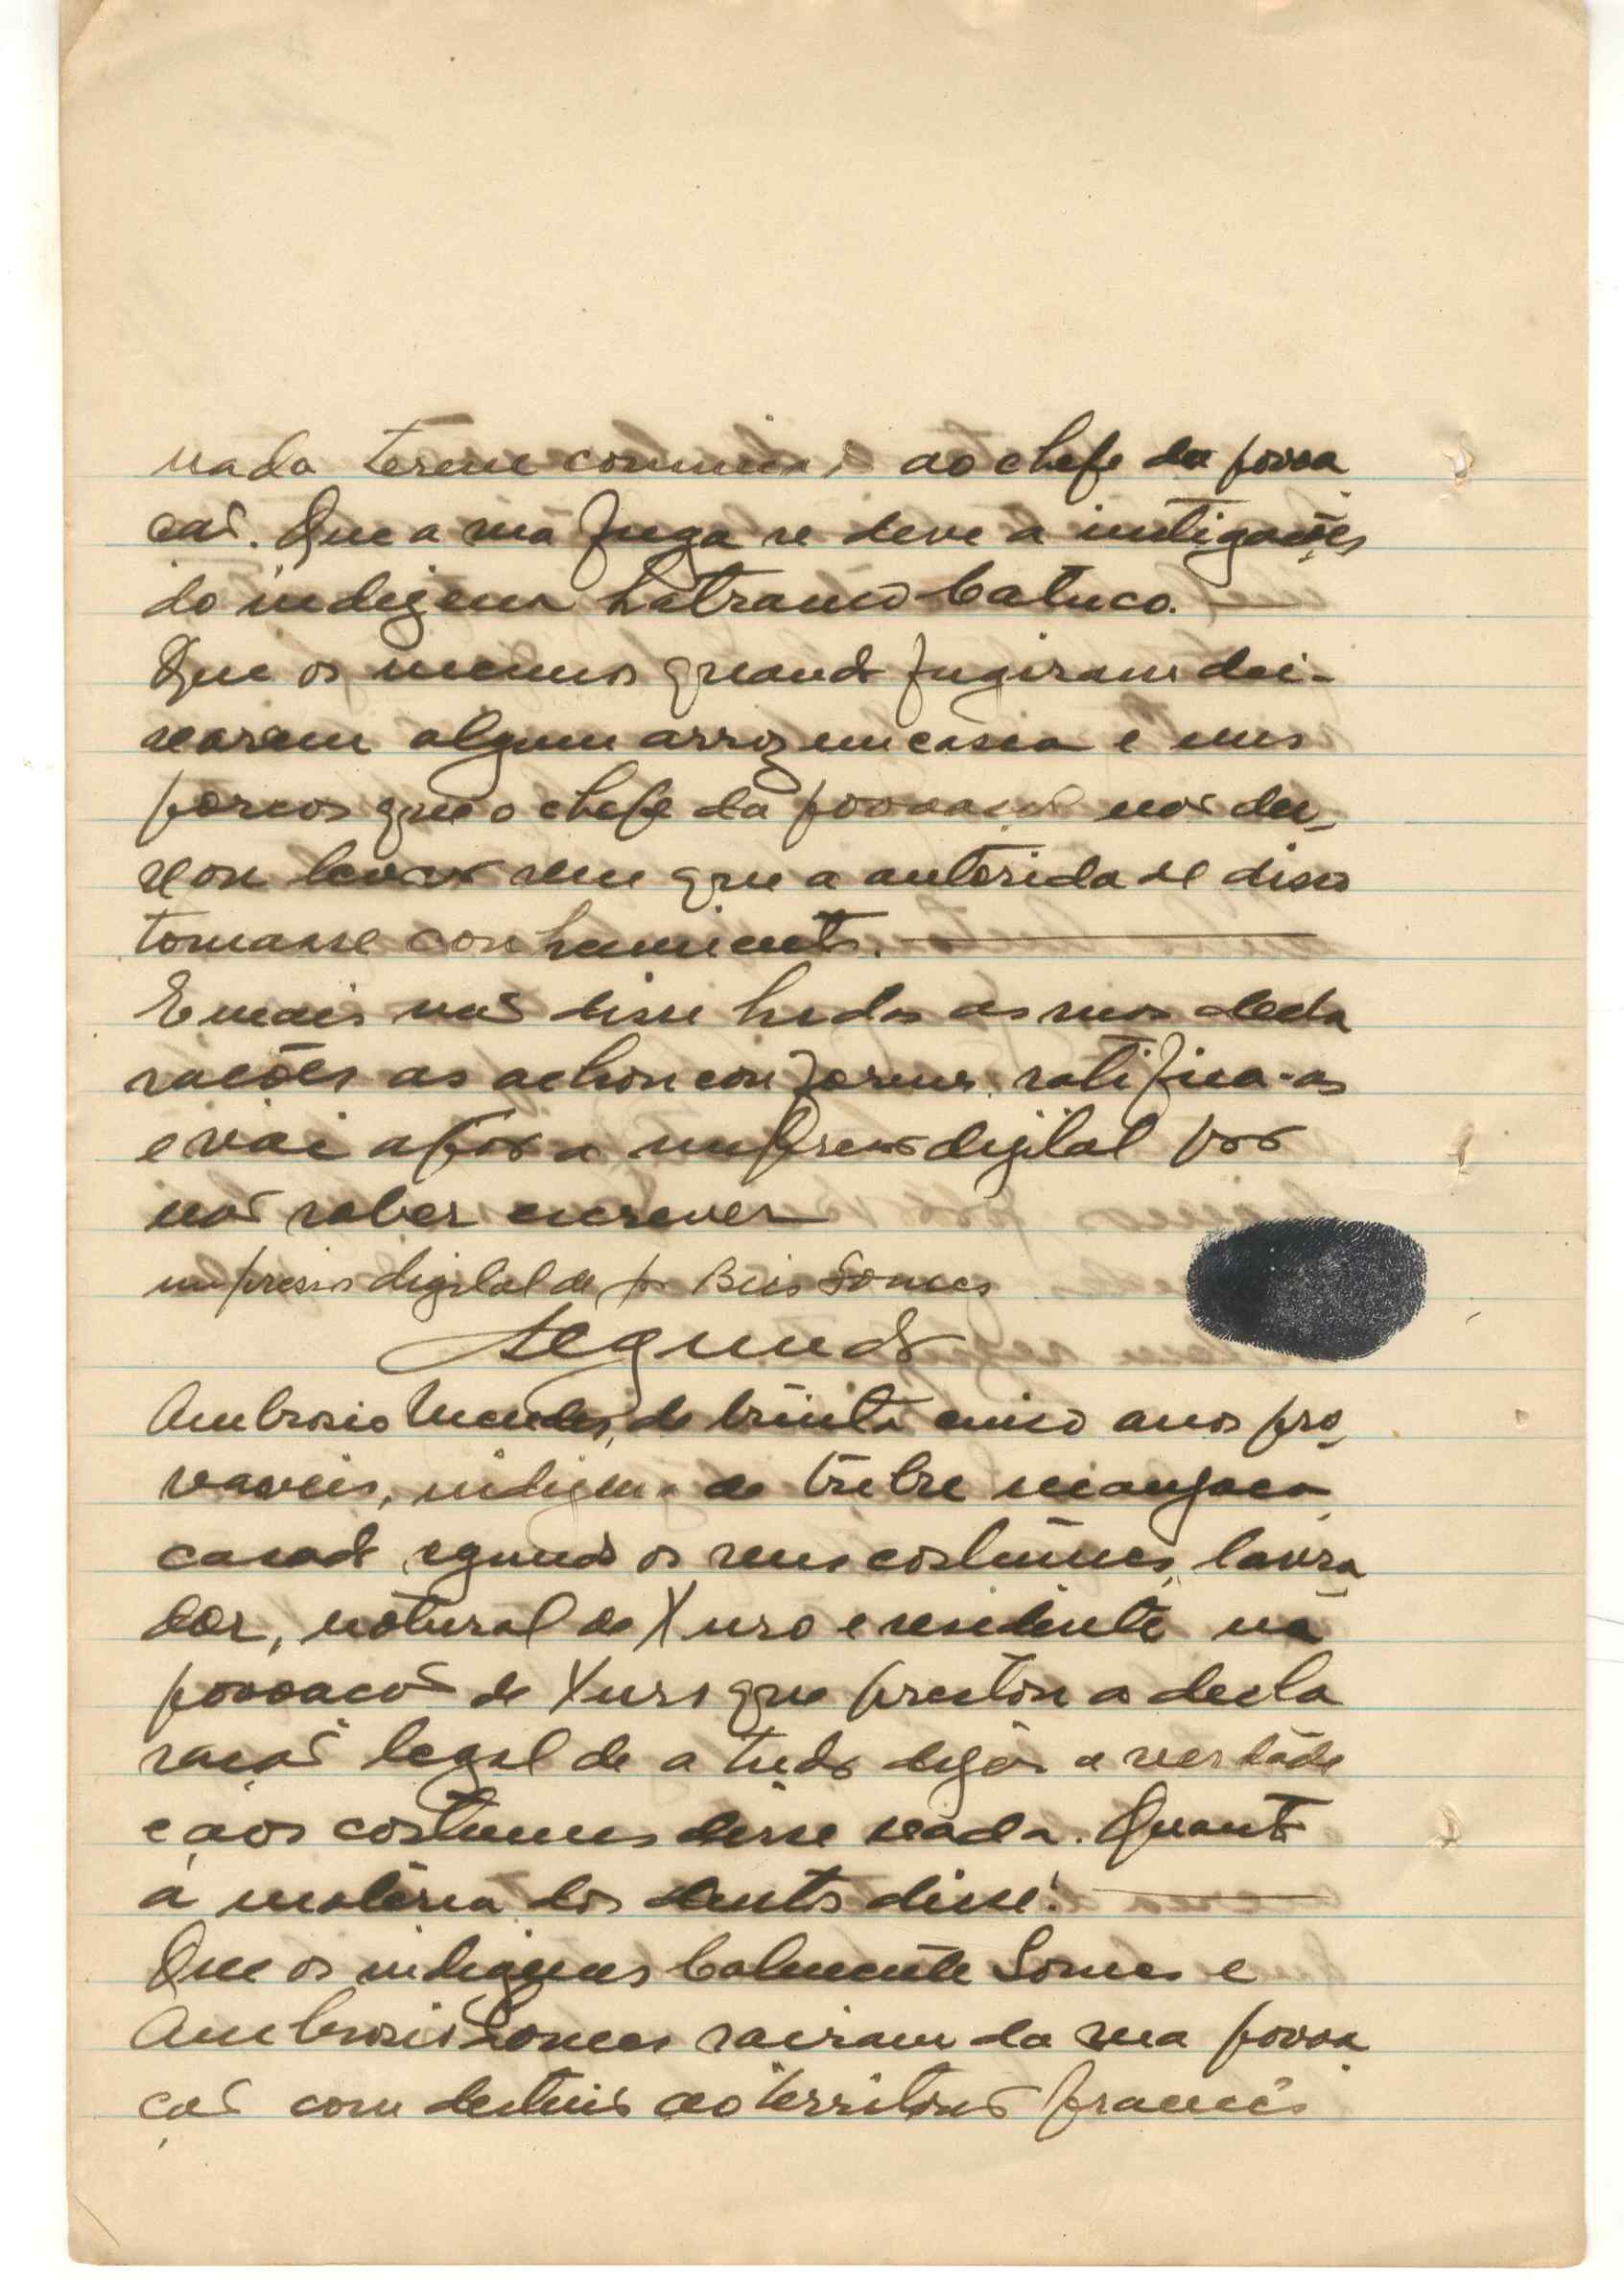 nada terem comunicar ao chefe da povoa
ção. Que a sua fuga se deve a instigações
do indigena Catuco.
Que os mesmos quando fugiram dei-
xaram algum arroz em casca e uns
porcos que o chefe da povoação nos dei-
xou levar sem que a autoridade disso
tomasse conhecimento.
E mais não disse lidas as suas decla
rações as achou conformes, ratifica-as
e vai apor a impressão digital por
não saber escrever
impressão digital de Gomes
Segundo
Ambrosio Mendes, de trinta cinco anos pro
vaveis, indigena de tribe manjaca
casado segundo os seus costumes, lavra
dor, natural de Xuro e residente na
povoação de Xuro que prestou a decla
ração legal de a tudo dizer a verdade
e aos costumes disse nada. Quanto
á materia dos autos disse:
Que os indigenas Gomes e
Ambrosio Gomes sairam da sua povoa
ção com destino ao território francês